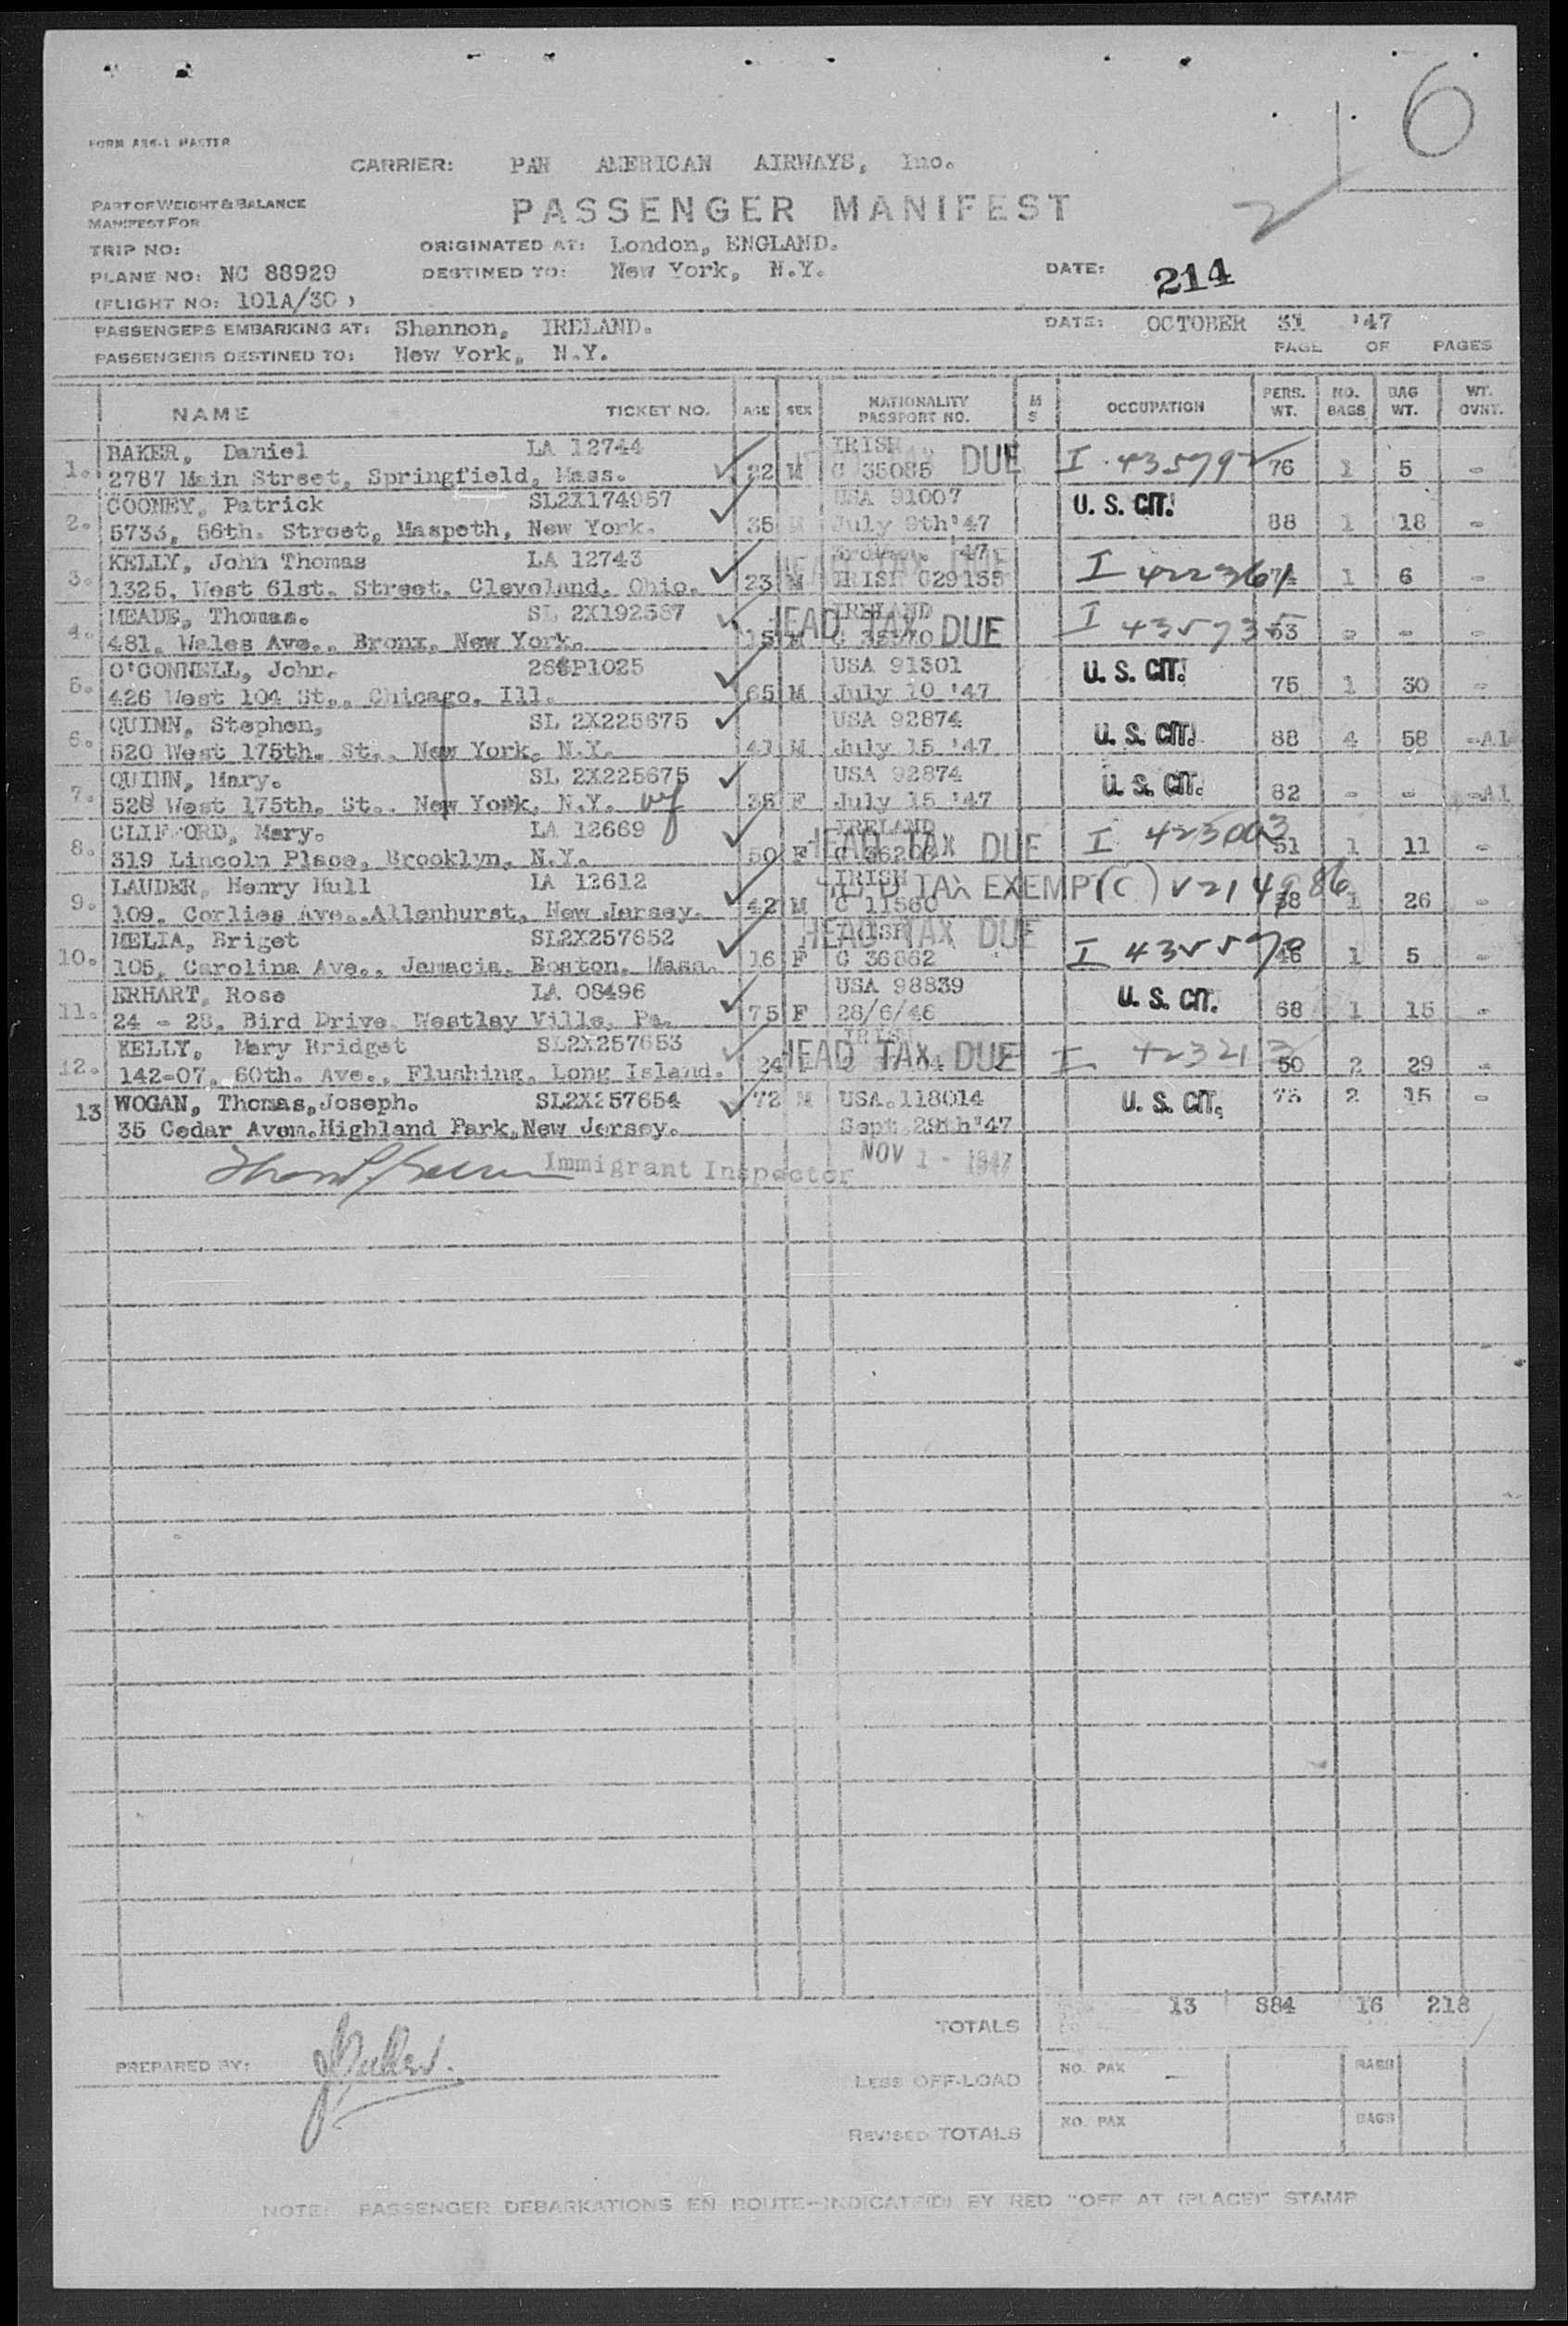 6
FORM AR6-1 MASTER
CARRIER: PAN AMERICAN AIRWAYS, Inc.
PART OF WEIGHT & BALANCE
MANIFEST FOR
PASSENGER MANIFEST
TRIP NO: ORIGINATED AT: London, ENGLAND.
PLANE NO: NC 88929 DESTINED TO: New York, N.Y. DATE: 214
(FLIGHT NO: 101A/30 )
PASSENGERS EMBARKING AT: Shannon, IRELAND. DATE: OCTOBER 31 '47
PASSENGERS DESTINED TO: New York, N.Y. PAGE OF PAGES
NAME TICKET NO. AGE SEX NATIONALITY PASSPORT NO. M S OCCUPATION PERS. WT. NO. BAGS BAG WT. WT. OVNT.
1. BAKER, Daniel LA 12744 IRISH DUE I 435792
2787 Main Street, Springfield, Mass. 22 M C 35085 76 1 5 -
2. COONEY, Patrick SL2X174957 USA 91007 U. S. CIT.
5733, 56th. Street, Maspeth, New York. 35 M July 9th'47 88 1 18 -
3. KELLY, John Thomas LA 12743 '47 HEAD TAX DUE I 422361
1325, West 61st. Street. Cleveland, Ohio. 23 M IRISH C29155 1 6 -
4. MEADE, Thomas. SL 2X192587 IRELAND HEAD TAX DUE I 435735
481, Wales Ave., Bronx, New York. 15 M 53 - - -
5. O'CONNELL, John. P1025 USA 91301 U. S. CIT.
426 West 104 St., Chicago, Ill. 65 M July 10 '47 75 1 30 -
6. QUINN, Stephen, SL 2X225675 USA 92874 U. S. CIT.
520 West 175th. St., New York, N.Y. 41 M July 15 '47 88 4 58 -A1-
7. QUINN, Mary. SL 2X225675 USA 92874 U. S. CIT.
520 West 175th. St., New York, N.Y. 36 F July 15 '47 82 - - -A1
8. CLIFFORD, Mary. LA 12669 IRELAND HEAD TAX DUE I 423003
319 Lincoln Place, Brooklyn, N.Y. 50 F 51 1 11 -
9. LAUDER, Henry Hull LA 12612 IRISH HEAD TAX EXEMPT (C) V214986
109, Corlies Ave., Allenhurst, New Jersey. 42 M C 11560 1 26 -
10. MELIA, Briget SL2X257652 IRISH HEAD TAX DUE I
105, Carolina Ave., Jamacia, Boston, Mass. 16 F C 36862 46 1 5 -
11. ERHART, Rose LA 08496 USA 98839 U. S. CIT.
24 - 28, Bird Drive Westlay Ville, Pa. 75 F 28/6/46 68 1 15 -
12. KELLY, Mary Bridget SL2X257653 IRISH HEAD TAX DUE I
142-07, 60th. Ave., Flushing, Long Island. 24 50 2 29 -
13 WOGAN, Thomas, Joseph. SL2X257654 72 M USA.118014 U. S. CIT. 75 2 15 -
35 Cedar Avem.Highland Park,New Jersey. Sept 29th'47
Immigrant Inspector NOV 1 - 1947
TOTALS 13 884 16 218
PREPARED BY:
LESS OFF-LOAD NO. PAX — BAGS
REVISED TOTALS NO. PAX BAGS
NOTE: PASSENGER DEBARKATIONS EN ROUTE—INDICATE(D) BY RED "OFF AT (PLACE)" STAMP